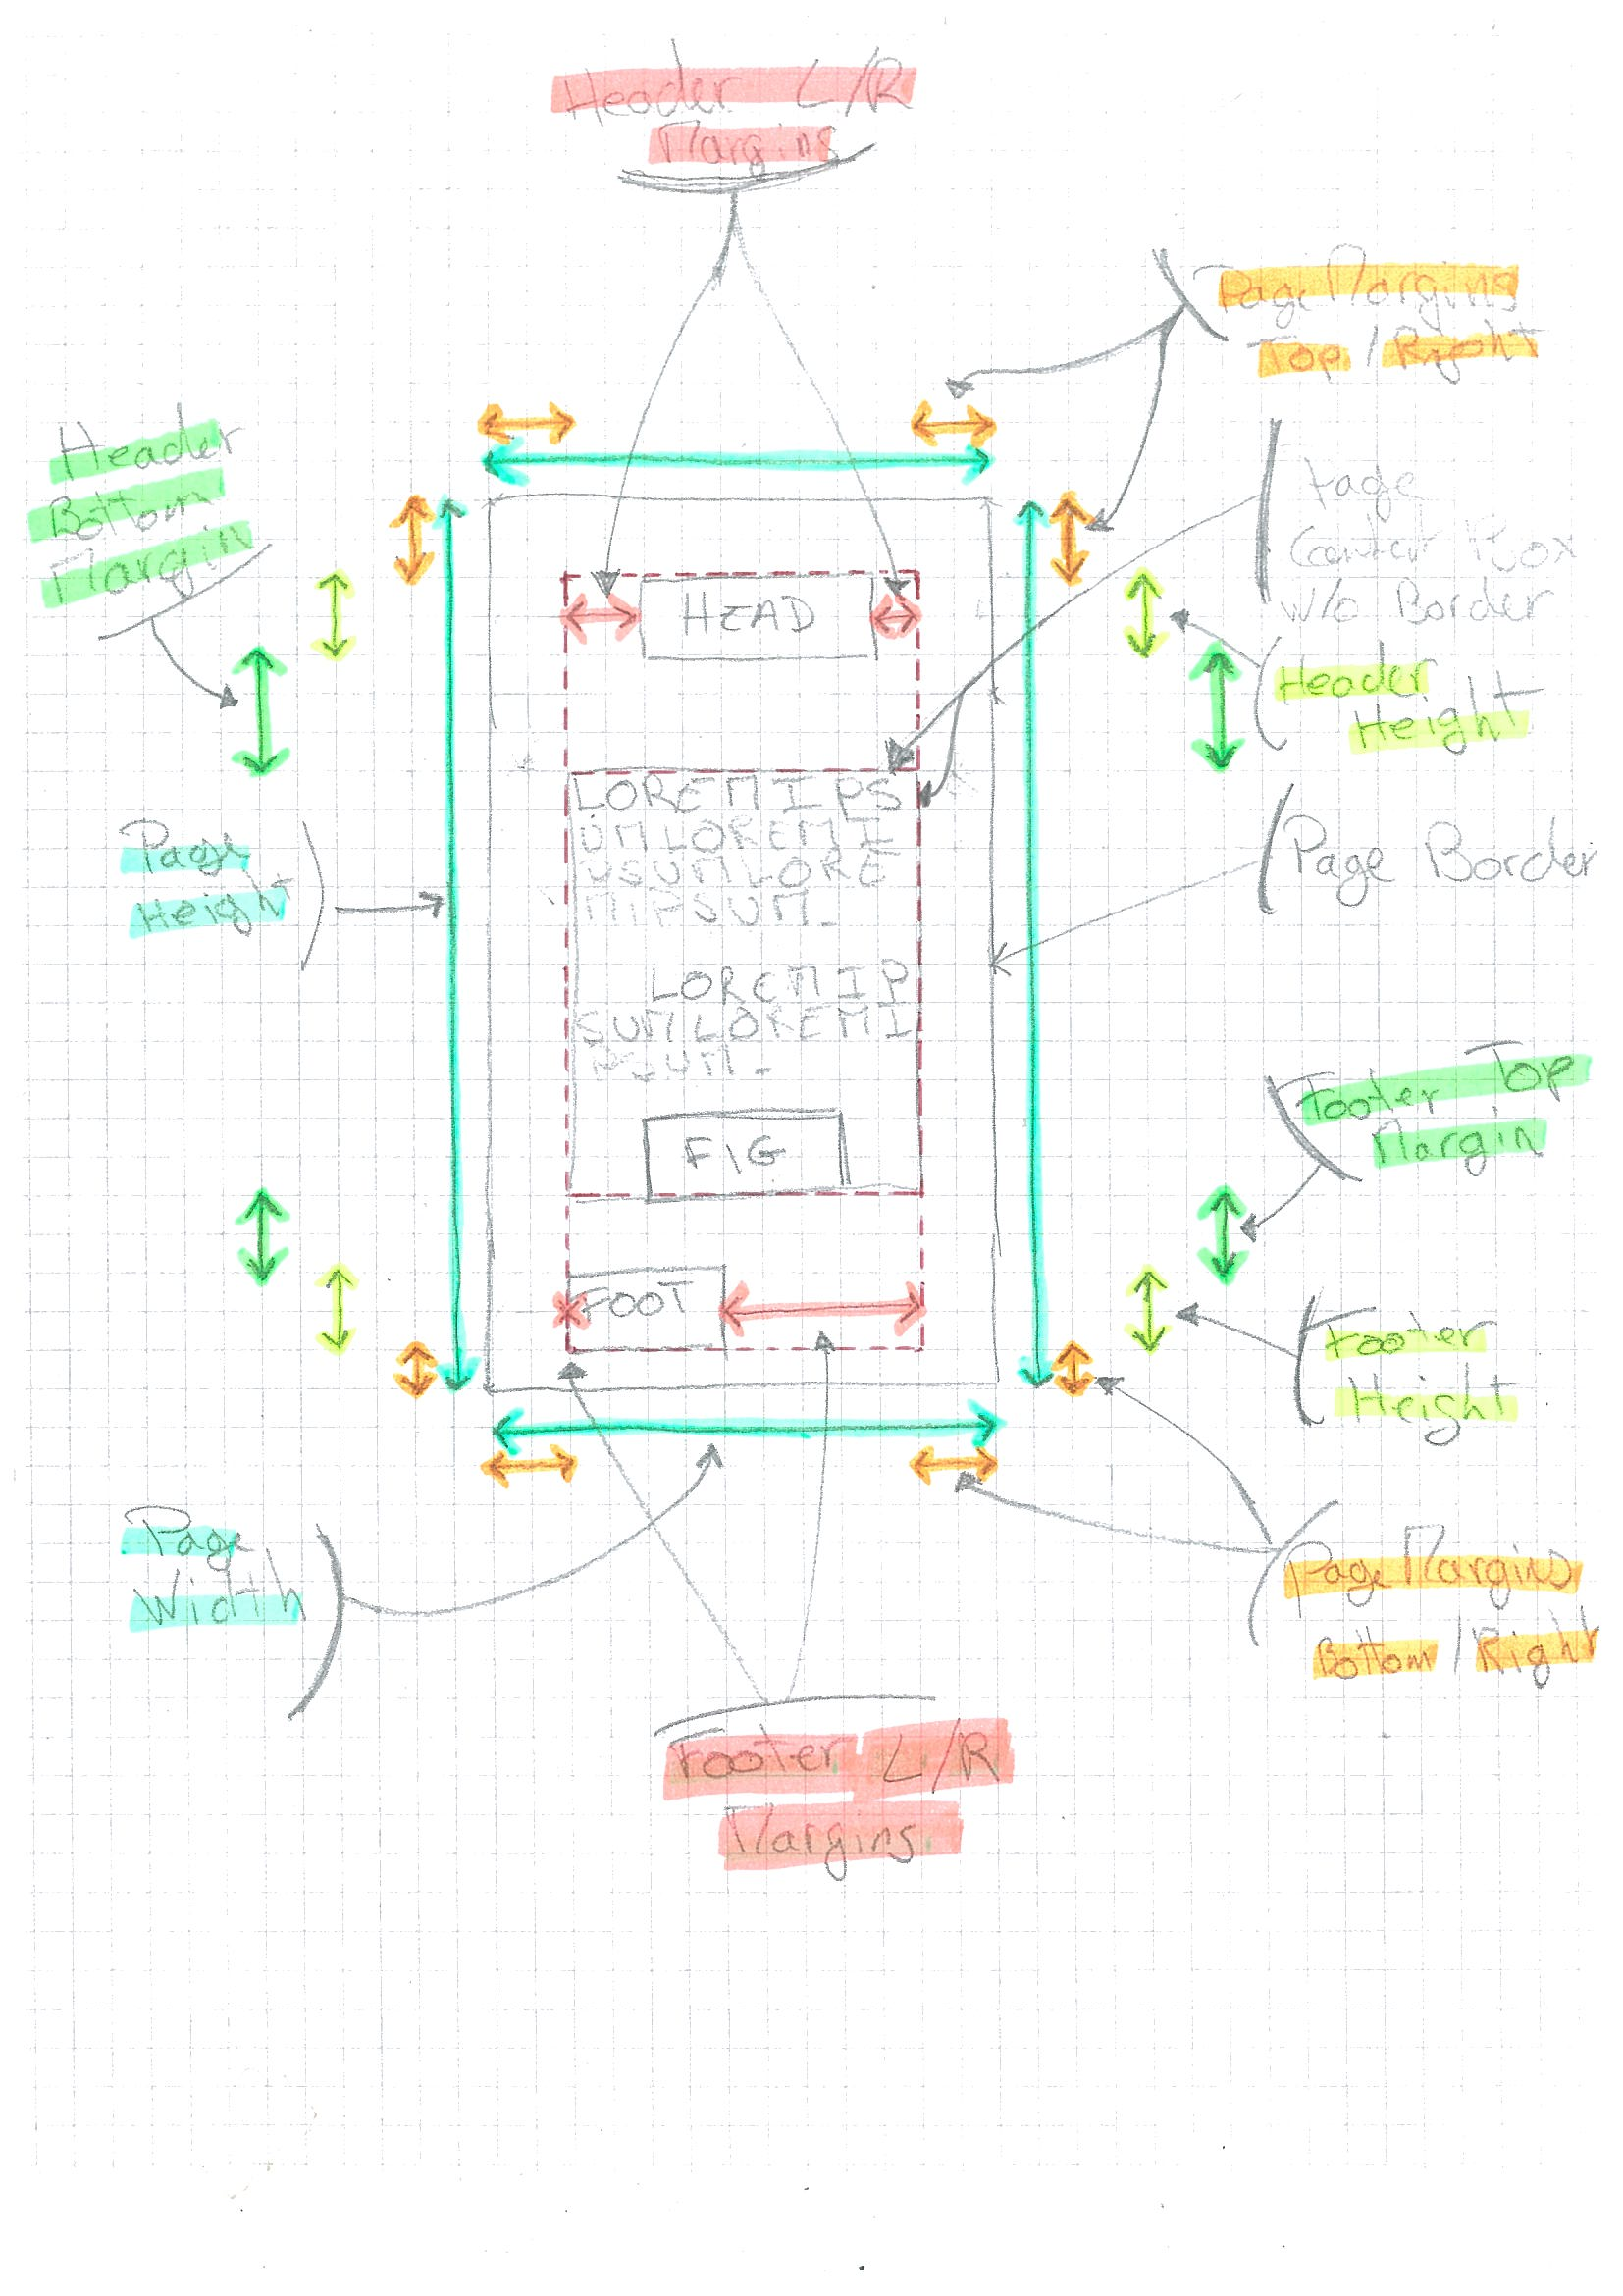 Header L/R
Margins
Page Margins
Top / Right
Header
Bottom
Margin
Page
Box
w/o Border
HEAD
Header
Height
LOREMIPS
UMLOREMI
PSUMLORE
MIPSUM.
Page
Height
Page Border
LOREMIP
SUMLOREMI
PSUM.
Footer Top
Margin
FIG
FOOT
Footer
Height
Page
Width
Page Margins
Bottom / Right
Footer L/R
Margins